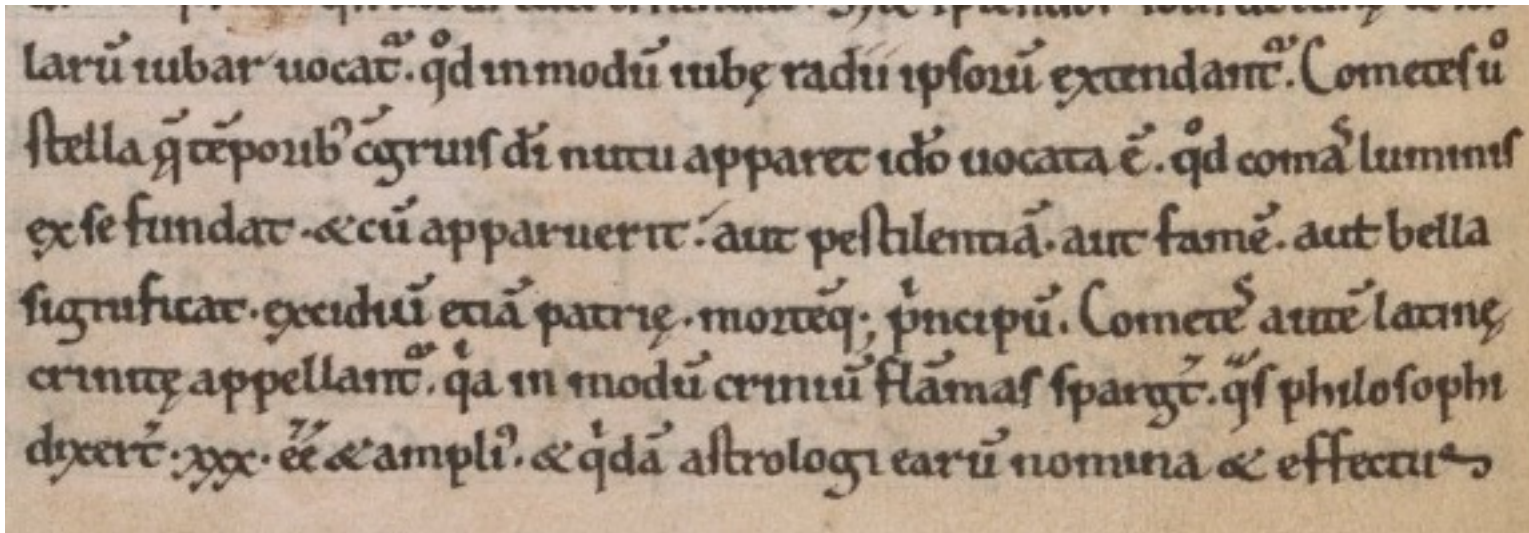 larū iubar uocat̄ᷓ. qͦd in modū iubę radii ipsorū extendant̄ᷓ. Cometes uͦ
stella q̄ tēporibꝰ c̄gruis d̄i nutu apparet id̄o uocata ē. qͦd comāˢ luminis
ex se fundat. & cū apparuerit: aut pestilentiā. aut famē. aut bella
significat. excidiū etiā patrię. mortēq; pⁱncipū. Cometēˢ autē latinę
crinitę appellant̄ᷓ. qⁱa in modū criniū flāmas spargt̄. qᷓs philosophi
dixert̄. xxx. ēē & ampliꝰ. & qⁱdā astrologi earū nomina & effectus